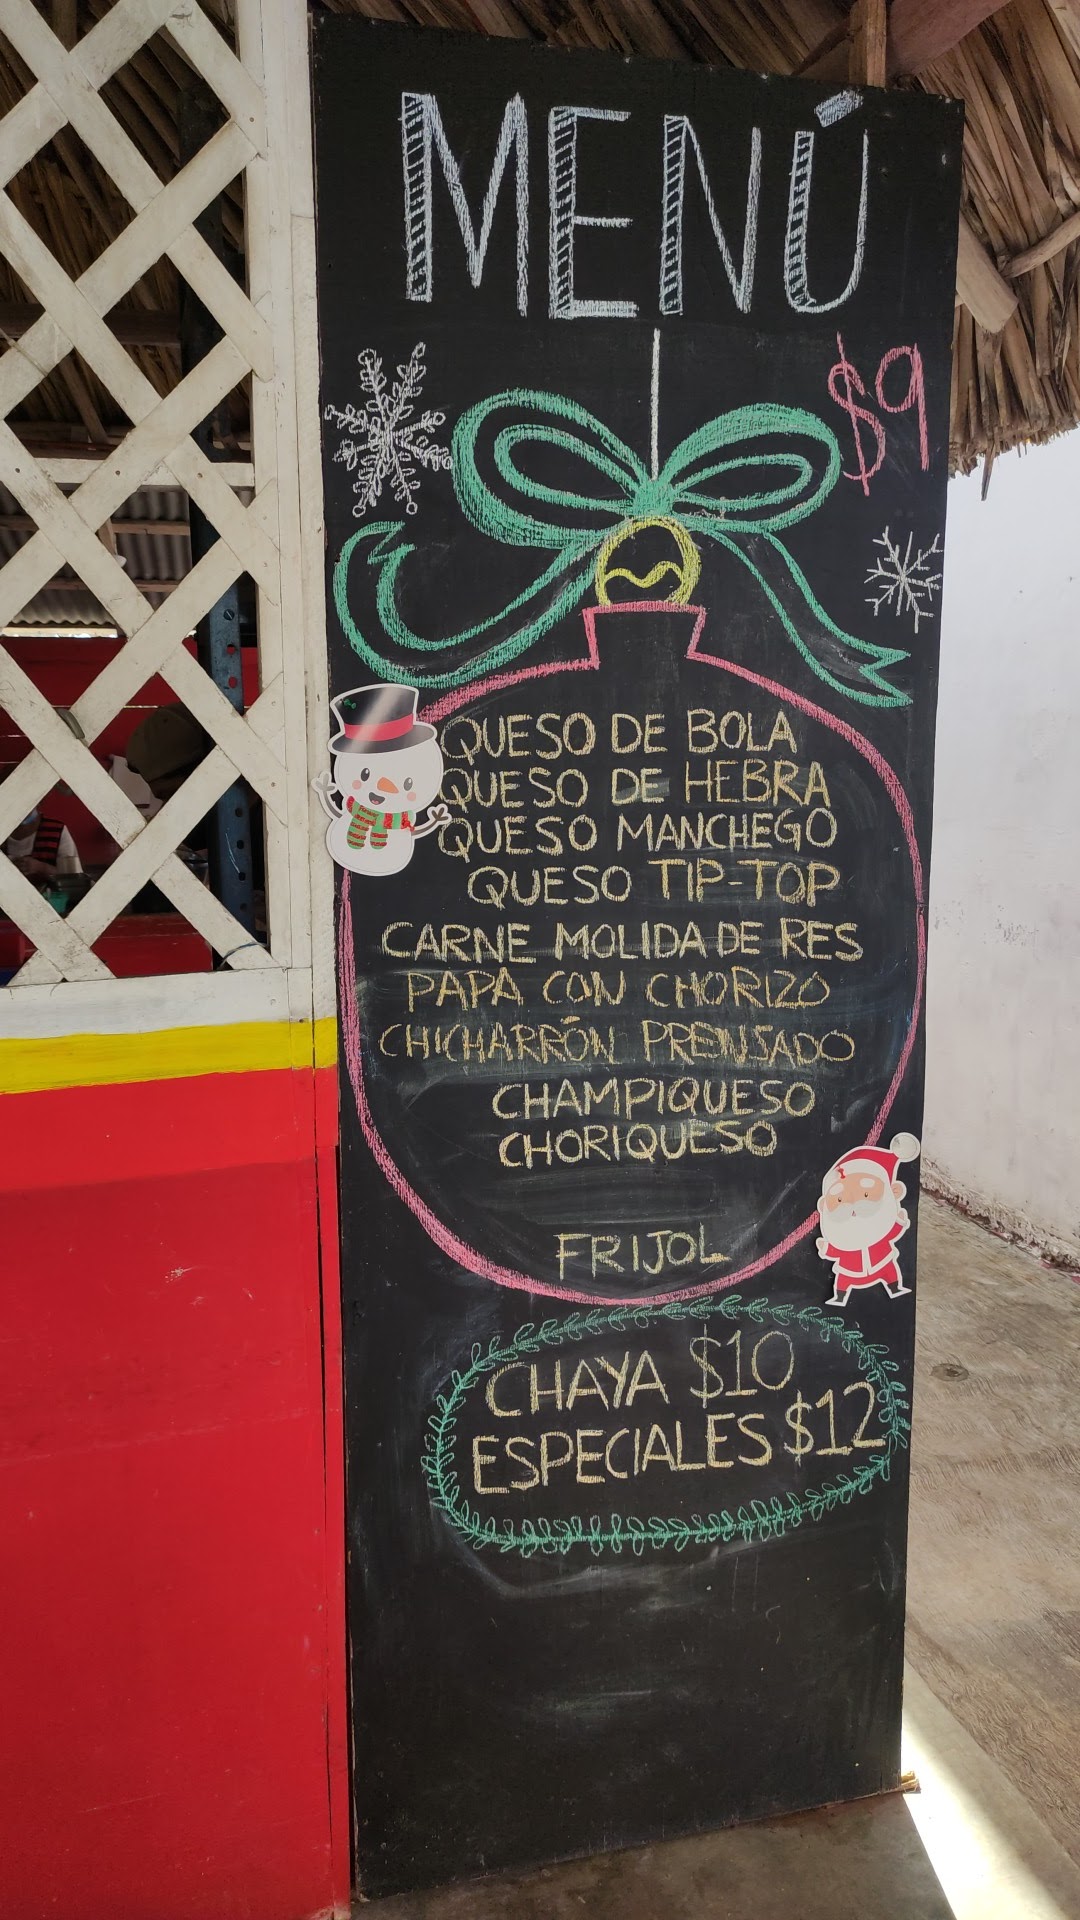 MENÚ
$9
QUESO DE BOLA
QUESO DE HEBRA
QUESO MANCHEGO
QUESO TIP-TOP
CARNE MOLIDA DE RES
PAPA CON CHORIZO
CHICHARRÓN PRENSADO
CHAMPIQUESO
CHORIQUESO
FRIJOL
CHAYA $10
ESPECIALES $12